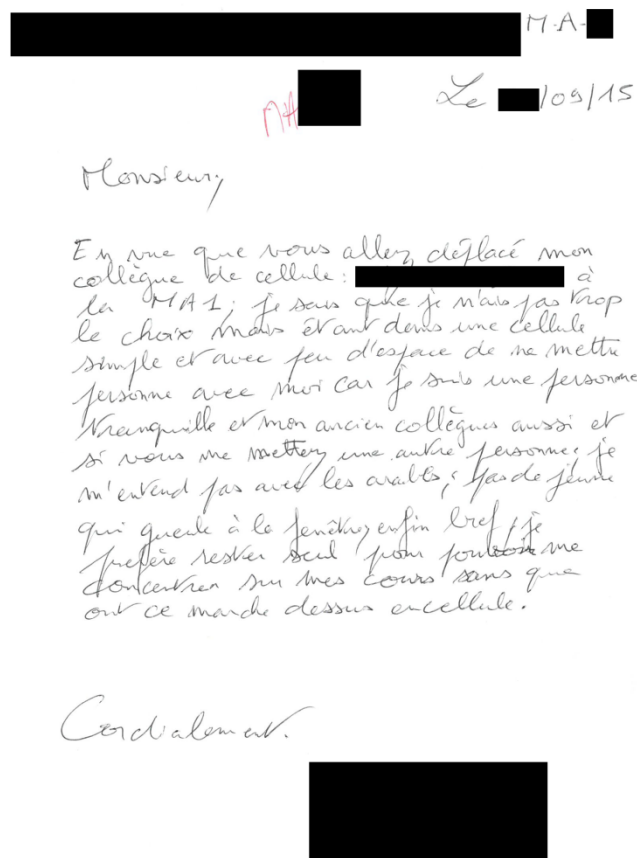 M-A-
MA
Le /09/15
Monsieur,
En vue que vous allez déplacé mon
collègue de cellule : à
la MA1, je sais que je n'ais pas trop
le choix mais étant dans une cellule
simple et avec peu d'espace de ne mettre
personne avec moi car je suis une personne
tranquille et mon ancien collègues aussi et
si vous me mettez une autre personne, je
m'entend pas avec les arabes, pas de jeune
qui gueule à la fenêtre, enfin bref, je
prefère rester seul pour pouvoir me
concentrer sur mes cours sans que
ont ce marche dessus encellule.
Cordialement.